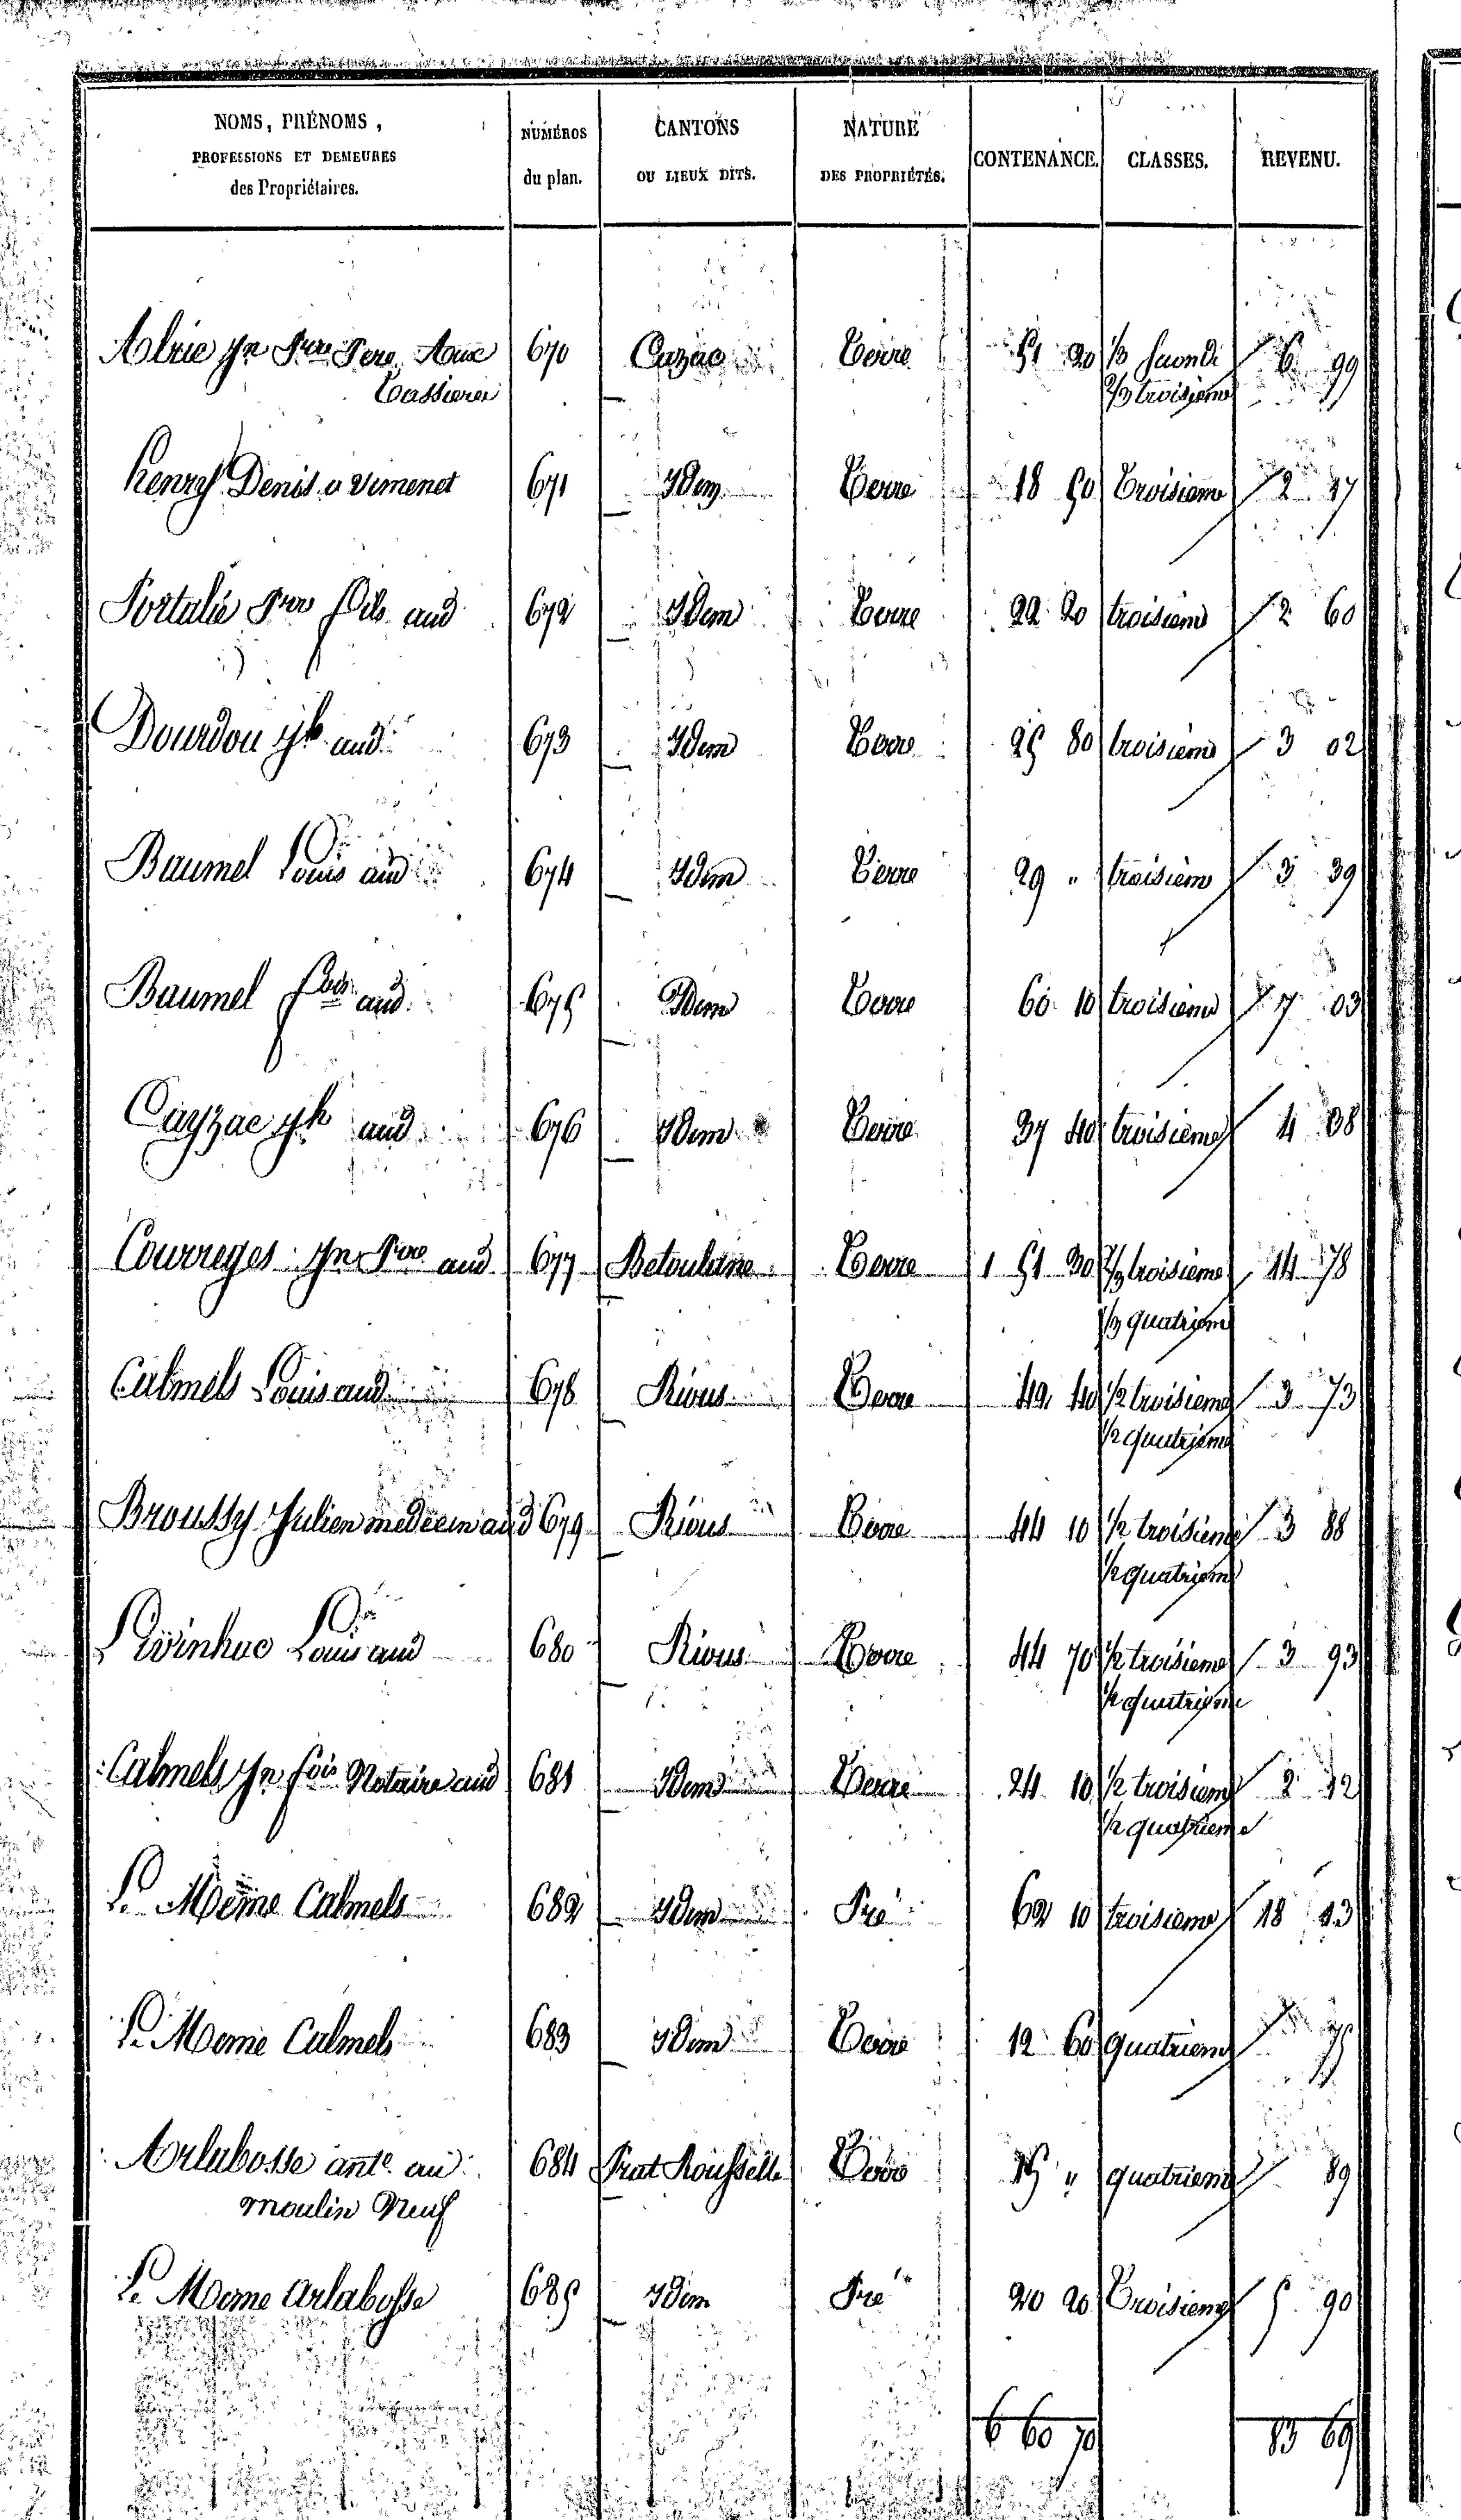 NOMS, PRÉNOMS, PROFESSIONS ET DEMEURES des Propriétaires. | NUMÉROS du plan. | CANTONS OU LIEUX DITS. | NATURE DES PROPRIÉTÉS. | CONTENANCE. | CLASSES. | REVENU.
Alrie Jn Pre Pere Aux | 670 | Cazac | Terre | 51 20 | 1/3 second | 6 99
Cassieres | 2/3 troisieme
Henry Denis a Vimenet | 671 | Idem | Terre | 18 50 | Troisieme | 2 17
Portalié Pre fils aud | 672 | Idem | Terre | 22 20 | troisieme | 2 60
Dourdou Jh aud | 673 | Idem | Terre | 25 80 | troisieme | 3 02
Baumel Louis aud | 674 | Idem | Terre | 29 " | troisieme | 3 39
Baumel fois aud | 675 | Idem | Terre | 60 10 | troisieme | 7 03
Cayzac Jh aud | 676 | Idem | Terre | 37 40 | troisieme | 4 38
Courreges Jn Pre aud | 677 | Betoulene | Terre | 1 51 30 | 2/3 troisieme | 14 78
1/3 quatrieme
Calmels Louis aud | 678 | Rious | Terre | 42 40 | 1/2 troisieme | 3 73
1/2 quatrieme
Broussy Julien medecin aud | 679 | Rious | Terre | 44 10 | 1/2 troisieme | 3 88
1/2 quatrieme
Louis aud | 680 | Rious | Terre | 44 70 | 1/2 troisieme | 3 93
1/2 quatrieme
Calmels Jn fois Notaire aud | 681 | Idem | Terre | 24 10 | 1/2 troisieme | 2 12
1/2 quatrieme
Le Même Calmels | 682 | Idem | Pré | 62 10 | troisieme | 18 13
Le Meme Calmels | 683 | Idem | Terre | 12 60 | quatrieme | 75
Arlabosse ante au | 684 | Prat Rousselle | Terre | 15 " | quatrieme | 89
moulin Neuf
Le Meme Arlabosse | 685 | Idem | Pré | 20 20 | Troisieme | 5 90
6 60 70 | 83 69